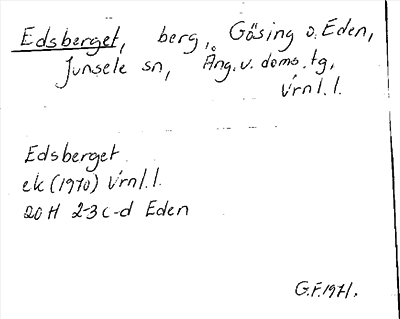 Edsberget, berg, Gåsing o. Eden,
Junsele sn, Ång. v. doms. tg,
Vrnl. l.
Edsberget
ek (1970) Vrnl. l.
20H 2-3 c-d Eden
G.F. 1971.